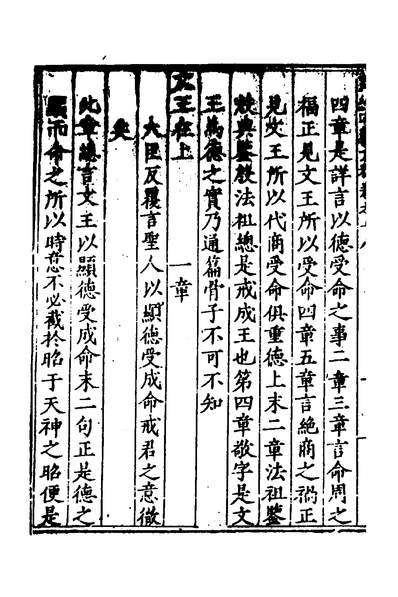 四章是詳言以德受命之事二章三章言命周之
福正見文王所以受命四章五章言絶商之禍正
見文王所以代商受命俱重德上末二章法祖鑒
殷與鑒殷法祖總是戒成王也第四章敬字是文
王爲德之實乃通篇骨子不可不知
文王在上 一章
大臣反覆言聖人以顯德受成命戒君之意微
矣
此章總言文王以顯德受成命末二句正是德之
顯而命之所以時意不必截於昭于天神之昭便是